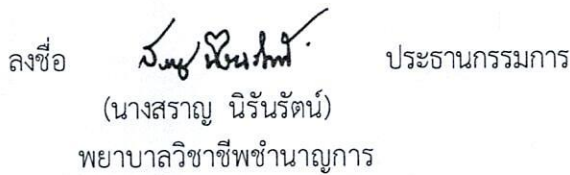 ลงชื่อ ประธานกรรมการ
(นางสราญ นิรันรัตน์)
พยาบาลวิชาชีพชำนาญการ